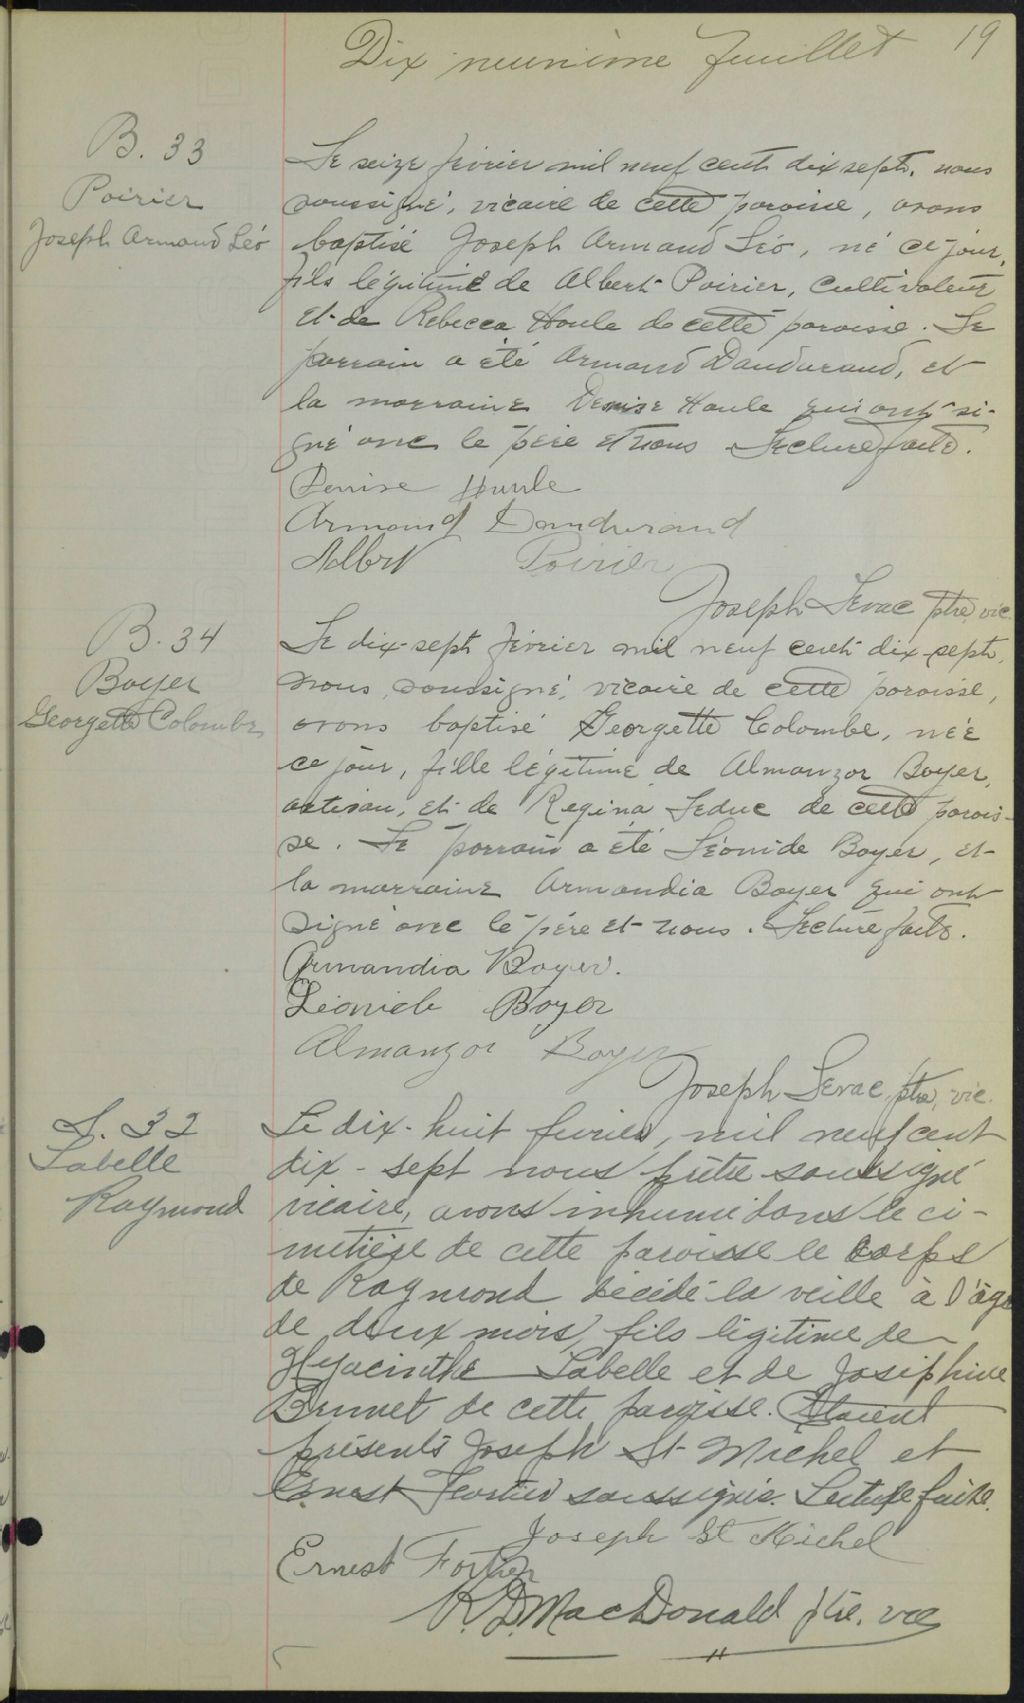 Dix neuvième feuillet 19
B. 33
Poirier
Joseph Armand Léo
Le seize février mil neuf cent dix sept, nous
soussigné, vicaire de cette paroisse, avons
baptisé Joseph Armand Léo, né ce jour,
fils légitime de Albert Poirier, cultivateur
et de Rebecca Houle de cette paroisse. Le
parrain a été Armand Dandurand, et
la marraine Denise Houle qui ont si-
gné avec le père et nous. Lecture faite.
Denise Houle
Armand Dandurand
Albert Poirier
Joseph Levac ptre, vic.
B. 34
Boyer
Georgette Colombe
Le dix-sept février mil neuf cent dix-sept,
nous, soussigné, vicaire de cette paroisse,
avons baptisé Georgette Colombe, née
ce jour, fille légitime de Almanzor Boyer,
artisan, et de Regina Leduc de cette parois-
se. Le parrain a été Léonide Boyer, et
la marraine Armandia Boyer qui ont
signé avec le père et nous. Lecture faite.
Armandia Boyer.
Léonide Boyer
Almanzor Boyer
Joseph Levac, ptre, vic.
S. 32
Labelle
Raymond
Le dix-huit février, mil neuf cent
dix-sept nous prêtre soussigné
vicaire, avons inhumé dans le ci-
metière de cette paroisse le corps
de Raymond décédé la veille à l'âge
de deux mois, fils légitime de
Hyacinthe Labelle et de Joséphine
Brunet de cette paroisse. Etaient
présents Joseph St-Michel et
Ernest Fortier soussignés. Lecture faite.
Joseph St Michel
Ernest Fortier
R. D. MacDonald ptre. vic